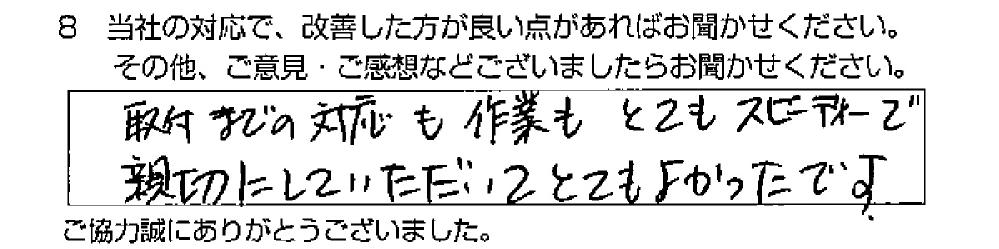 8 当社の対応で、改善した方が良い点があればお聞かせください。
その他、ご意見・ご感想などございましたらお聞かせください。
取付までの対応も作業もとてもスピーディーで
親切にしていただいてとてもよかったです。
ご協力誠にありがとうございました。